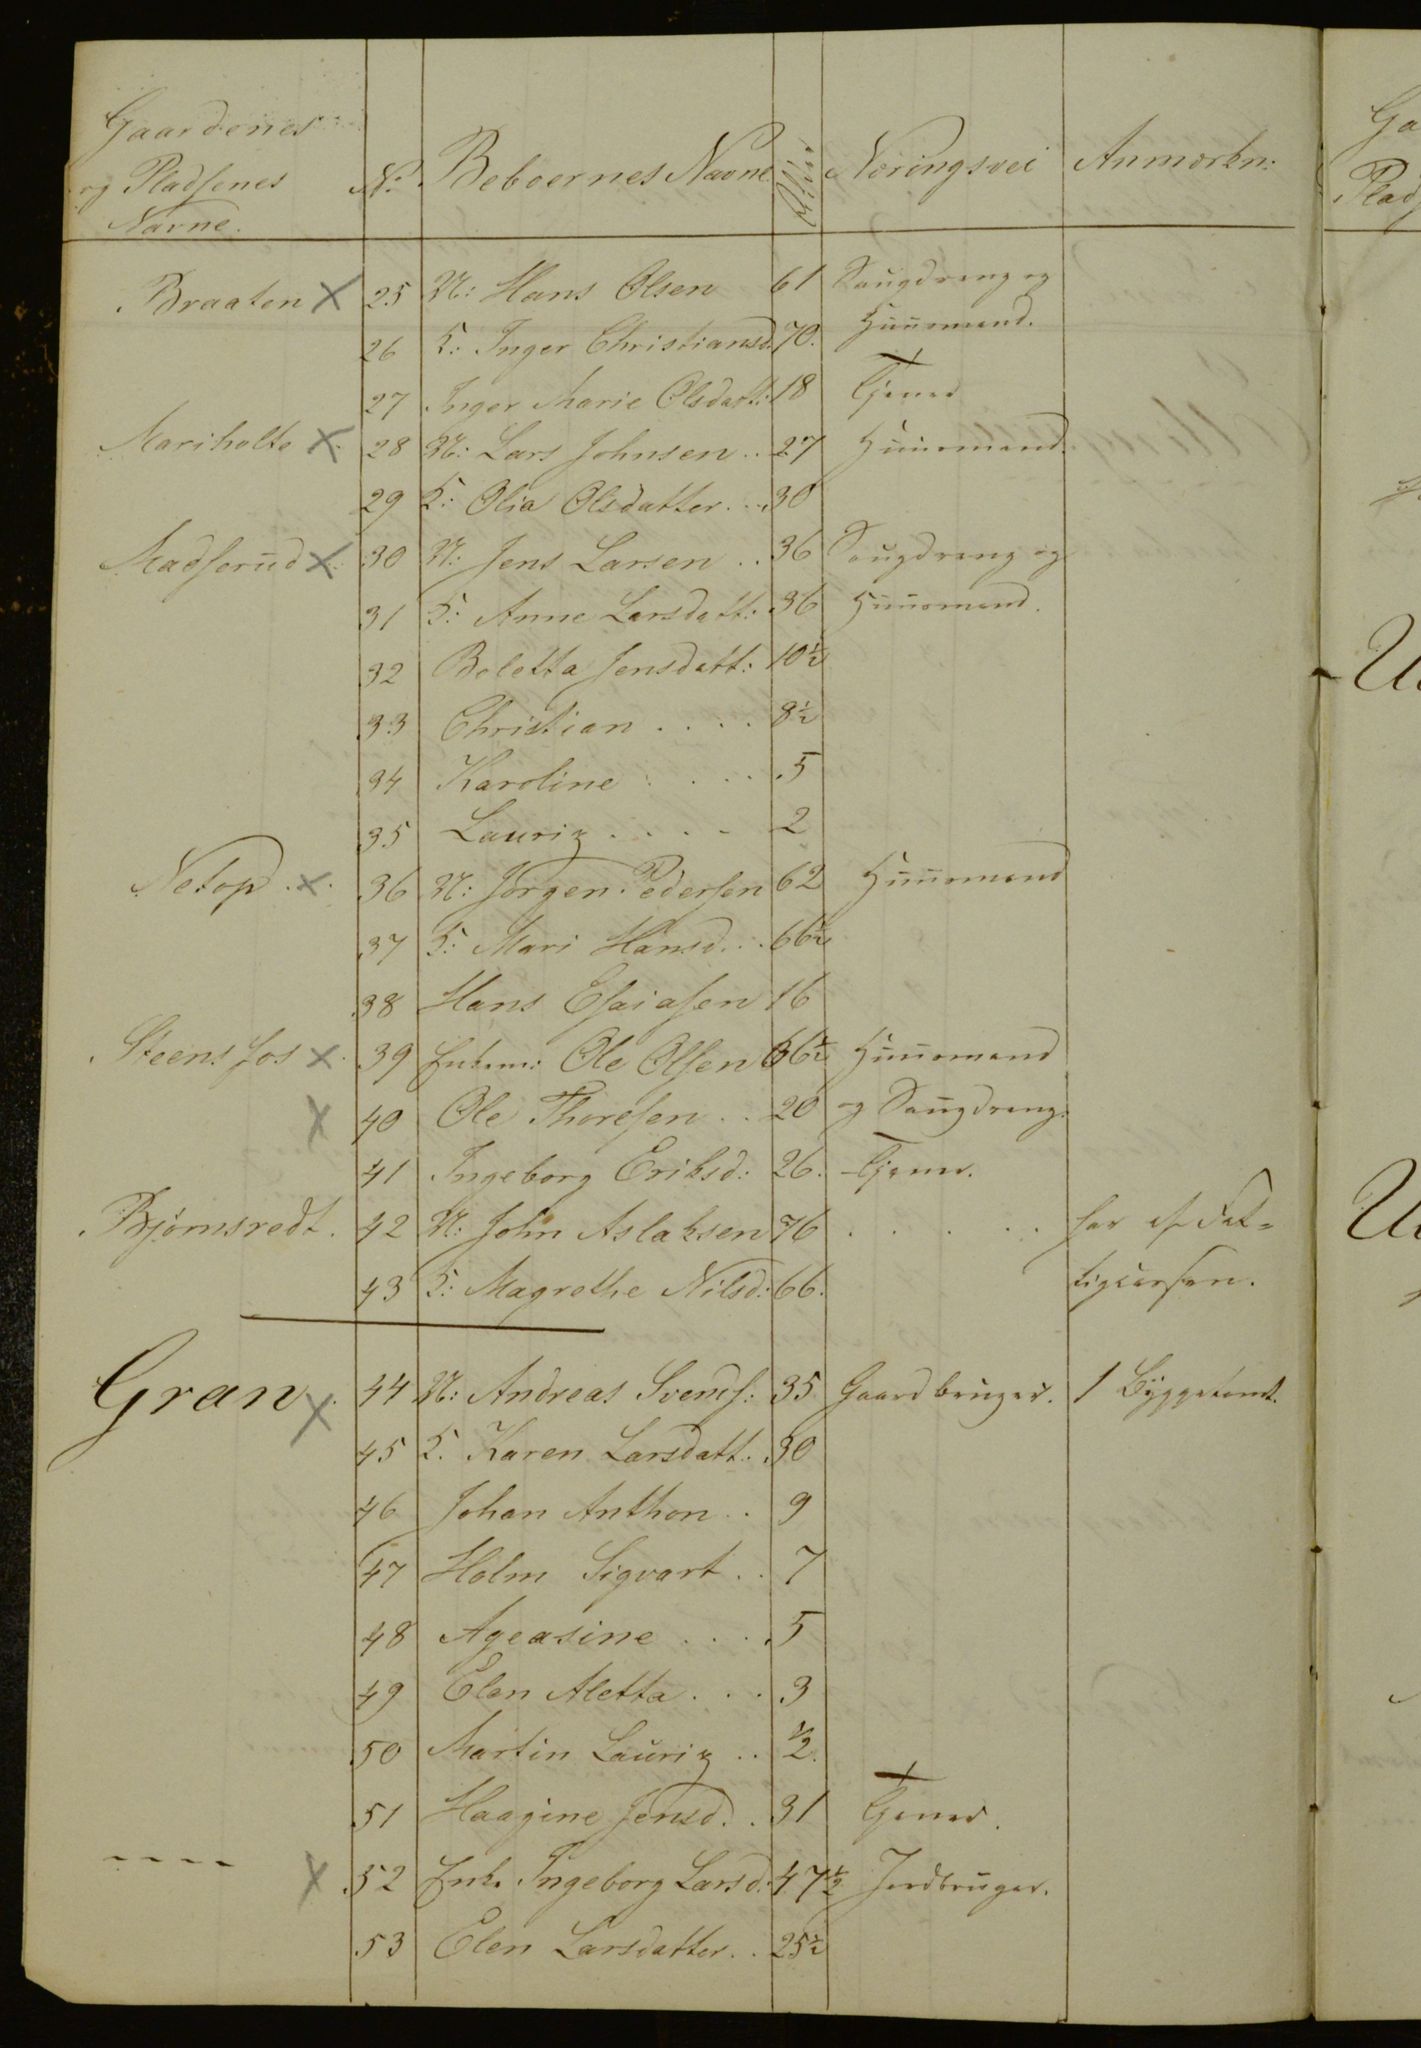 Gaardenes
og Pladsenes
Navne.
No
Beboernes Navne
Alder
Næringsvei
Anmærkn:
Braaten x 25 M: Hans Olsen 61 Saugdreng og
26 K: Inger Christiansd. 70. Huusmand.
27 Inger Marie Olsdatt: 18 Tjener
Mariholte x 28 M: Lars Johnsen .. 27 Huusmand.
29 K: Olia Olsdatter ... 30
Madserud x 30 M: Jens Larsen .. 36 Saugdreng og
31 K: Anne Larsdatt: 36 Huusmand.
32 Boletta Jensdatt: 10½
33 Christian .... 8½
34 Karoline .... 5
35 Lauriz .... 2
Netop . x . 36 M: Jørgen Pedersen 62 Huusmand
37 K: Mari Hansd. .. 66½
38 Hans Esaiasen 16
Steensfos x . 39 Enkem: Ole Olsen 66½ Huusmand
x 40 Ole Thoresen .. 20 og Saugdreng.
41 Ingeborg Eriksd: 26. Tjener.
Bjørnsredt . 42 M: John Aslaksen 76 . . . . . har af Fat-
43 K: Magrethe Nilsd: 66. tigcassen.
Gran x 44 M: Andreas Svends: 35 Gaardbruger. 1 Byggetomt.
45 K. Karen Larsdatt. 30
46 Johan Anthon .. 9
47 Holm Sigvart .. 7
48 Ageasine .... 5
49 Elen Aletta ... 3
50 Martin Lauriz .. ½.
51 Haagine Jensd. . 31 Tjener.
---- x 52 Enke Ingeborg Larsd: 47½ Jordbruger.
53 Elen Larsdatter .. 25½